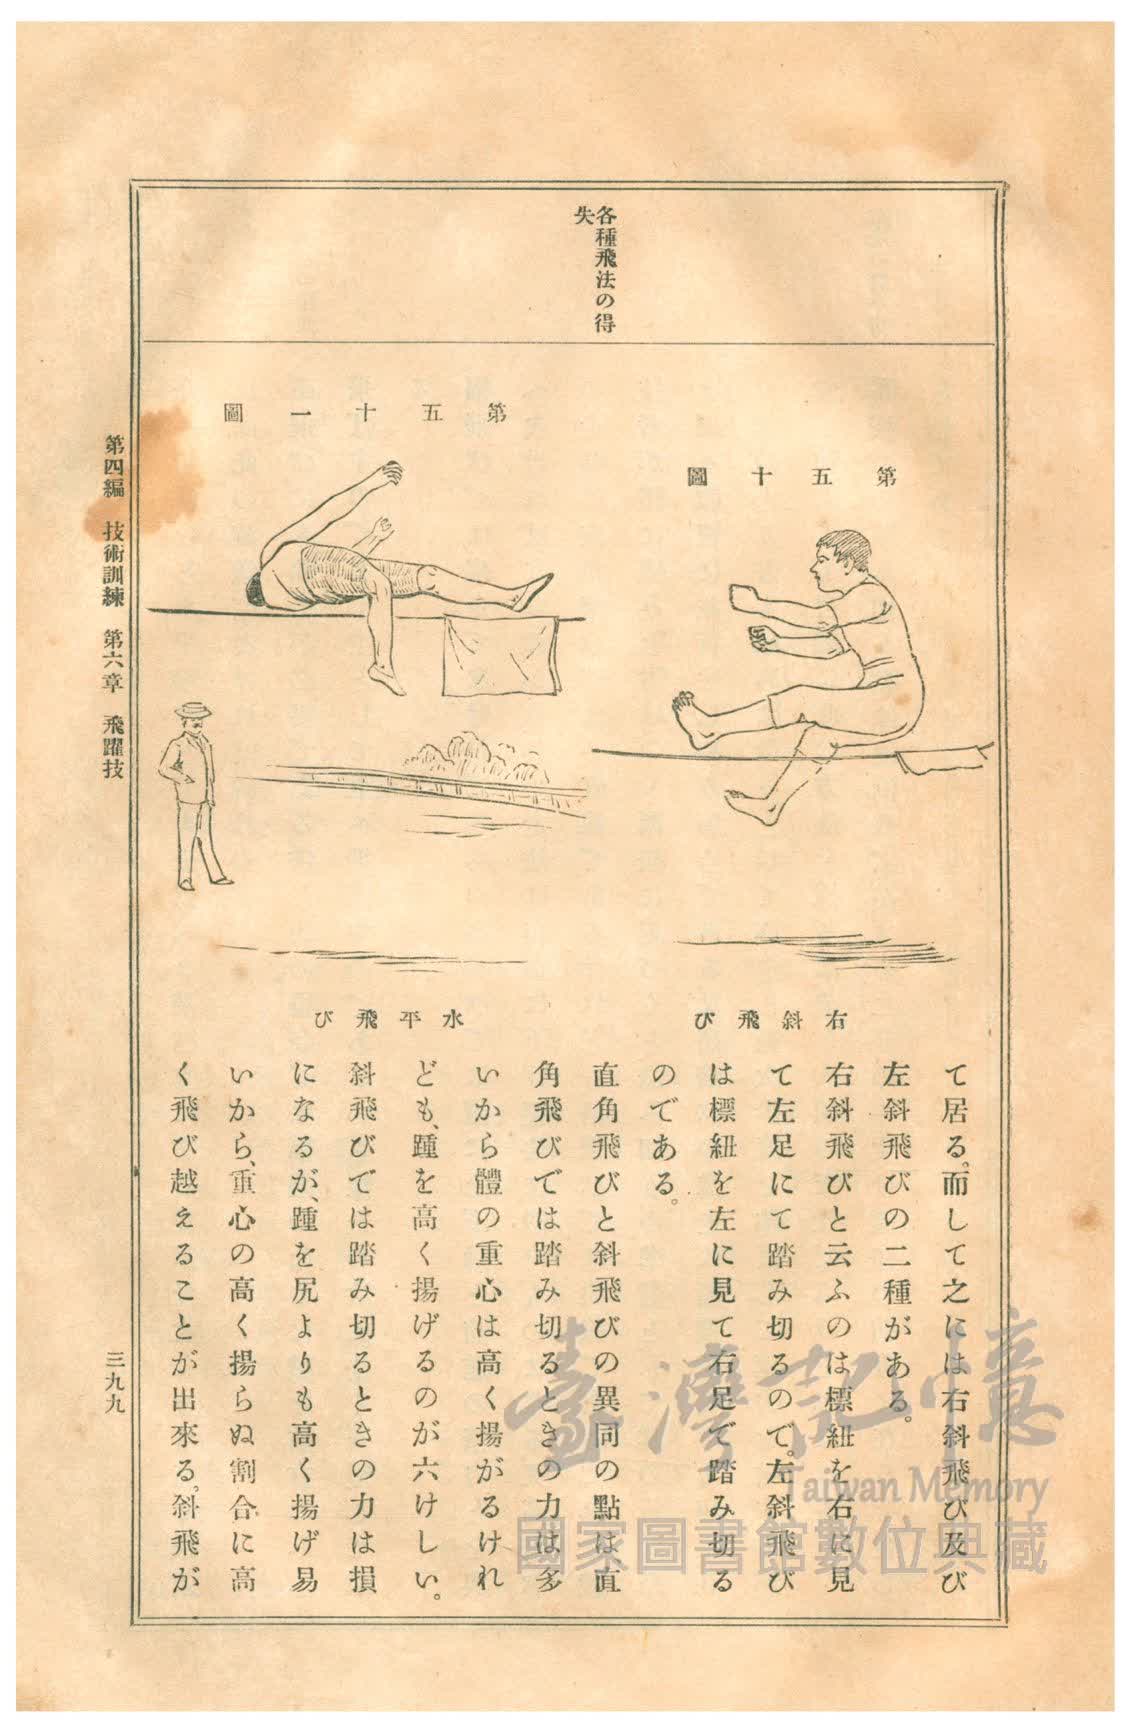 各種飛法の得
失
第五十圖
右斜飛び
第五十一圖
水平飛び
て居る。而して之には右斜飛び及び
左斜飛びの二種がある。
右斜飛びと云ふのは標紐を右に見
て左足にて踏み切るので。左斜飛び
は標紐を左に見て右足で踏み切る
のである。
直角飛びと斜飛びの異同の點は直
角飛びでは踏み切るときの力は多
いから體の重心は高く揚がるけれ
ども、踵を高く揚げるのが六けしい。
斜飛びでは踏み切るときの力は損
になるが、踵を尻よりも高く揚げ易
いから、重心の高く揚らぬ割合に高
く飛び越えることが出來る。斜飛が
第四編　技術訓練　第六章　飛躍技
三九九
臺灣記憶
Taiwan Memory
國家圖書館數位典藏